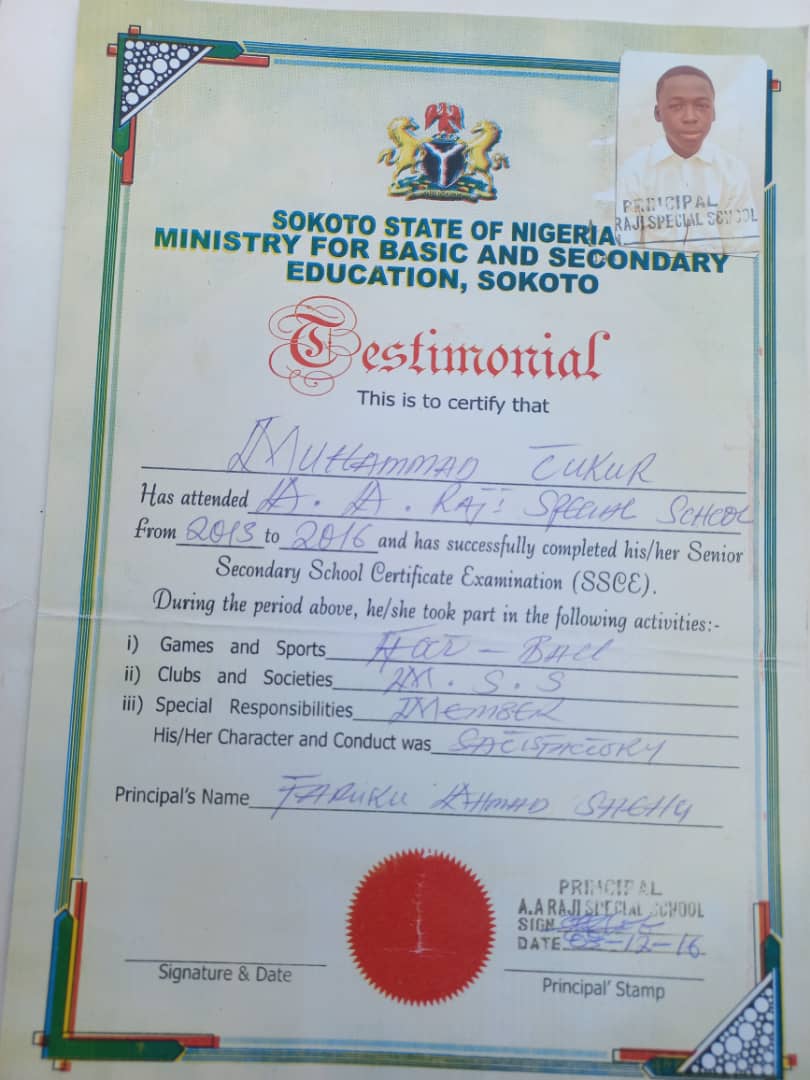 PRINCIPAL
RAJI SPECIAL SCHOOL
SOKOTO STATE OF NIGERIA
MINISTRY FOR BASIC AND SECONDARY
EDUCATION, SOKOTO
Testimonial
This is to certify that
MUHAMMAD TUKUR
Has attended A. A. RAJI SPECIAL SCHOOL
From 2013 to 2016 and has successfully completed his/her Senior
Secondary School Certificate Examination (SSCE).
During the period above, he/she took part in the following activities:-
i) Games and Sports FOOT-BALL
ii) Clubs and Societies M.S.S
iii) Special Responsibilities MEMBER
His/Her Character and Conduct was SATISFACTORY
Principal's Name FARUKU AHMAD SHEHU
PRINCIPAL
A.A RAJI SPECIAL SCHOOL
SIGN
DATE -12-16
Signature & Date
Principal' Stamp